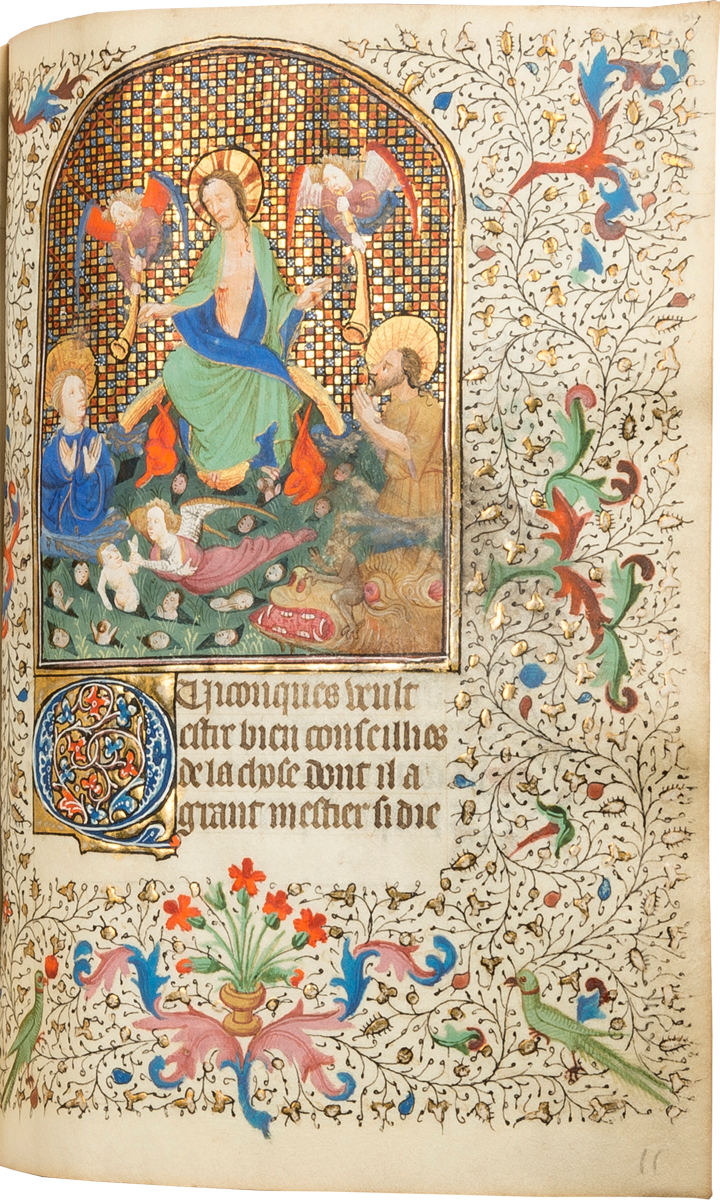 QUiconques veult
estre bien conseillies
de la chose dont il a
grant mestier si die
11